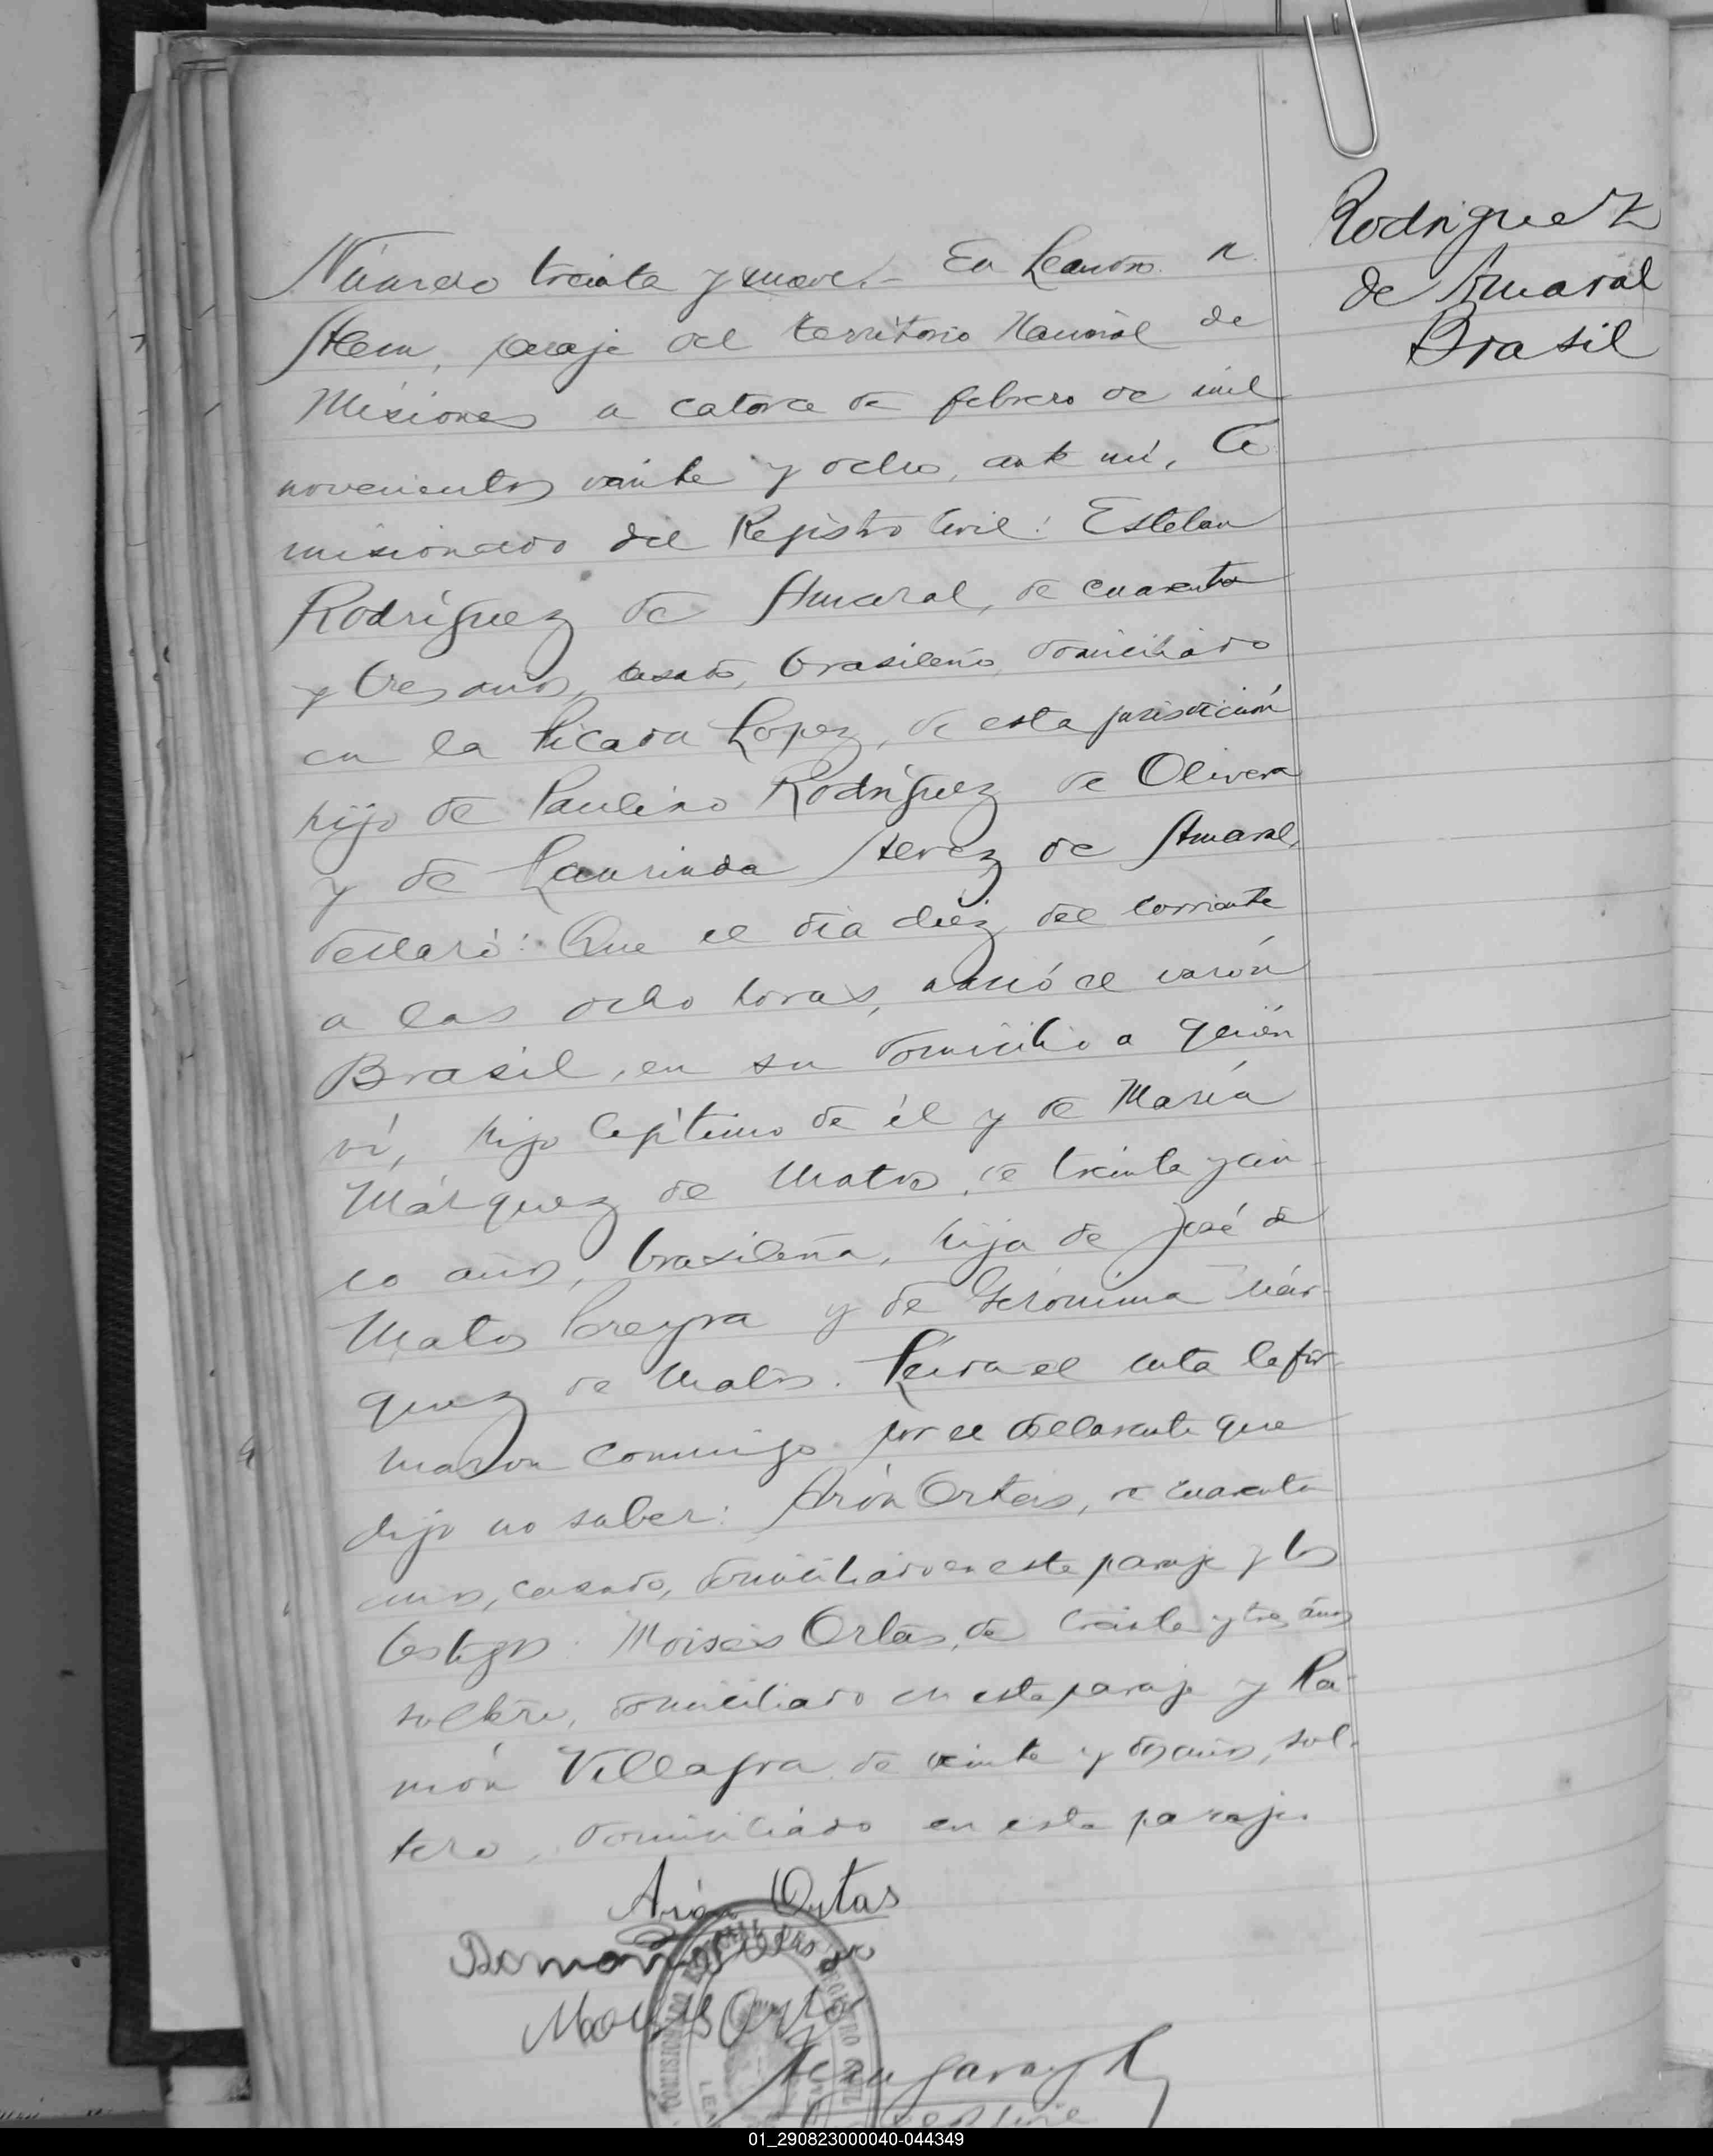 Rodriguez
de Amaral
Brasil
Número treinta y nueve.- En Leandro N.
Alem, paraje del territorio Nacional de
Misiones a catorce de febrero de mil
novecientos veinte y ocho, ante mí, Co
misionado del Registro Civil: Esteban
Rodríguez de Amaral, de cuarenta
y tres años, casado, brasileño, domiciliado
en la Picada Lopez, de esta jurisdicción
hijo de Paulino Rodríguez de Olivera
y de Laurinda Alvez de Amaral,
declaró: Que el día diéz del corriente
a las ocho horas, nació el varón
Brasil, en su domicilio a quién
ví, hijo legítimo de él y de María
Márquez de Matos, de treinta y cin-
co años, brasileña, hija de José de
Matos Pereyra y de Gerónima Már-
quez de Matos. Leída el acta la fir-
maron conmigo por el declarante que
dijo no saber: Arón Ortas, de cuarenta
años, casado, domiciliado en este paraje y los
testigos Moisés Ortas, de treinta y tres años
soltero, domiciliado en este paraje y Ra-
món Villagra de veinte y dos años, sol-
tero, domiciliado en este paraje.
Arón Ortas
Moises Ortas
COMISIONADO REGISTRO CIVIL
01_290823000040-044349